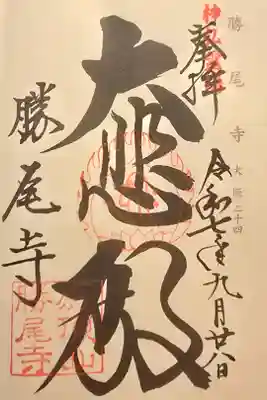 奉拝
勝尾寺
大阪二十四
令和七年九月廿八日
大悲殿
勝尾寺
勝尾寺